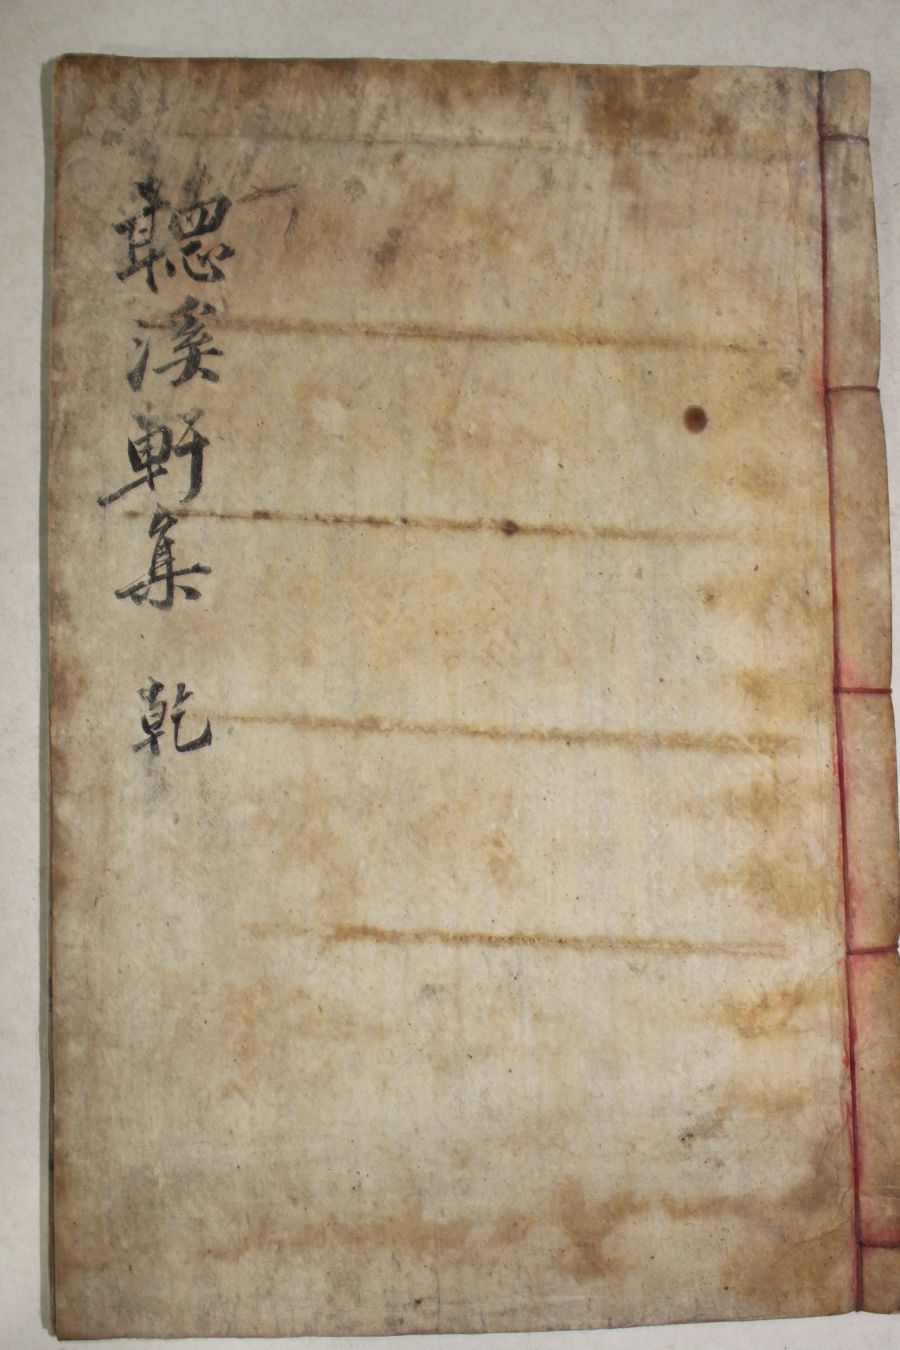 聽溪軒集 乾